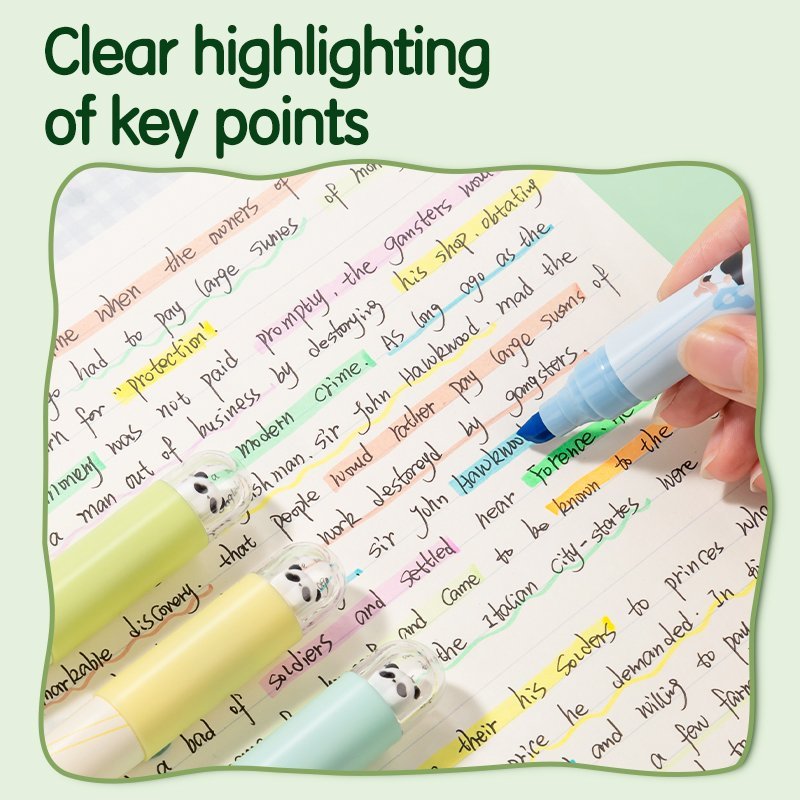 Clear highlighting
of key points
me when the owners of
had to pay large sumes of mon
for "protection".
money was not paid promptly, the gansters wou
a man out of business by destorying his shop. obtating
modern crime. As long ago as the
shman. sir John Hawkwood. mad the
markable discovery. that people would rather pay large sums of
work destoroyd by gangsters.
sir John Hawkwoo
soldiers and settled near Forence, he
and came to be known to the
a bad of
the Italian city-startes were
their his solders to princes who
price he demanded. In ti
and willing to pay
a few farm